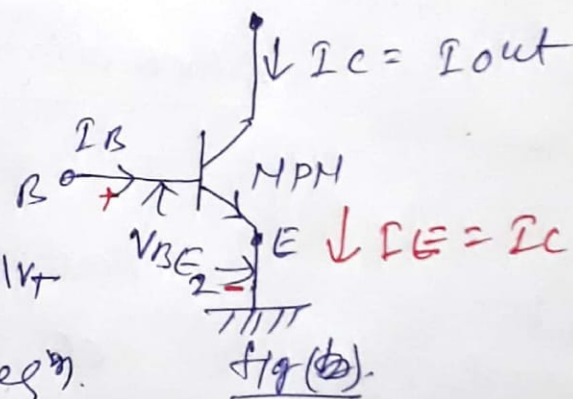 ↓ IC = Iout
IB
B + NPN
VBE2 - E ↓ IE = IC
|VT
eqn.
fig(b).